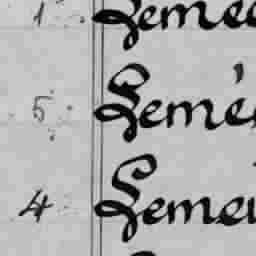 1 Lemé
5 Lemé
4 Leme